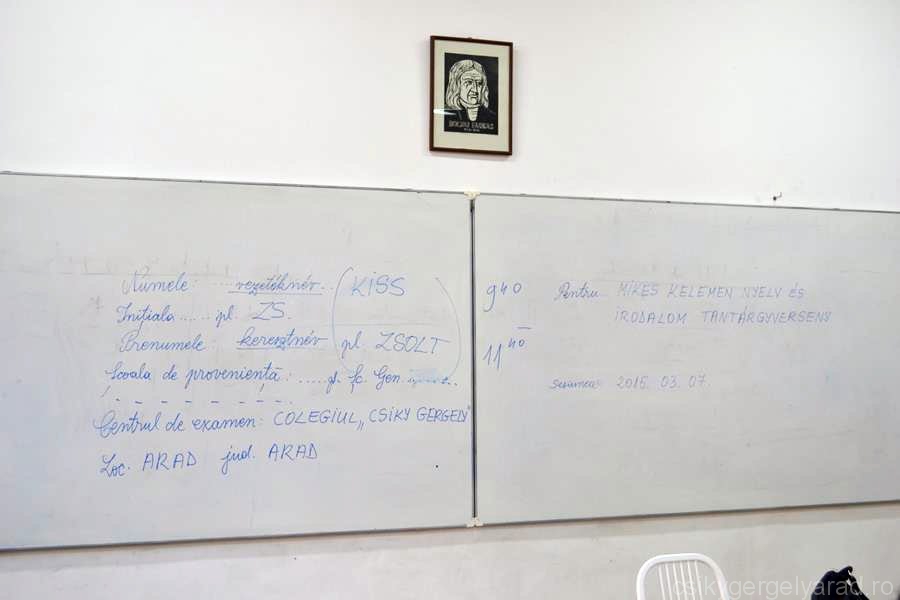 Numele: ... vezetéknév ... KISS
Iniţiala ...... pl. ZS.
Prenumele: keresztnév pl. ZSOLT
Şcoala de provenienţă: ..... pl. Şc. Gen. ........
Centrul de examen: COLEGIUL „CSIKY GERGELY"
Loc. ARAD jud. ARAD
9 40
–
11 40
Pentru MIKES KELEMEN NYELV ÉS
IRODALOM TANTÁRGYVERSENY
2015. 03. 07.
csikygergelyarad.ro